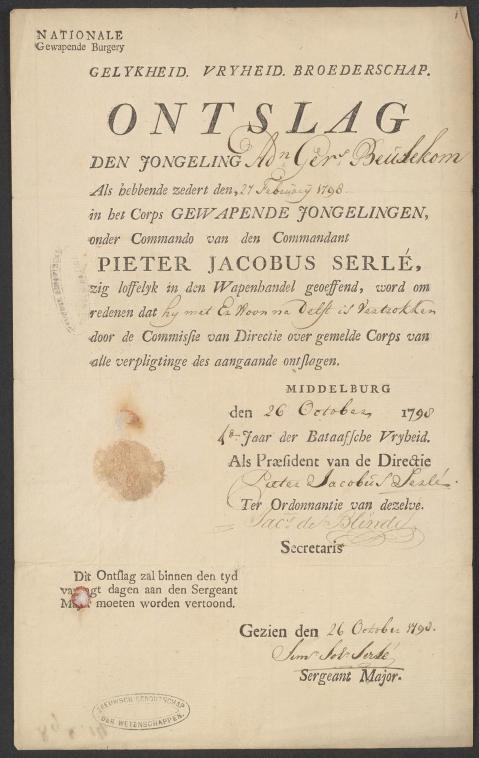 NATIONALE
Gewapende Burgery
GELYKHEID. VRYHEID. BROEDERSCHAP.
ONTSLAG
DEN JONGELING Adn. Gers. Beusekom
Als hebbende zedert den, 27 February 1798
in het Corps GEWAPENDE JONGELINGEN,
onder Commando van den Commandant
PIETER JACOBUS SERLÉ,
zig loffelyk in den Wapenhandel geoeffend, word om
redenen dat hy met Er Woon na Delft is Vertrokken
door de Commissie van Directie over gemelde Corps van
alle verpligtinge des aangaande ontslagen.
MIDDELBURG
den 26 October 1798
4de Jaar der Bataafsche Vryheid.
Als Præsident van de Directie
Pieter Jacobus Serlé.
Ter Ordonnantie van dezelve.
Jacs. de Blinde
Secretaris
Dit Ontslag zal binnen den tyd
van agt dagen aan den Sergeant
Major moeten worden vertoond.
Gezien den 26 October 1798.
Serlé
Sergeant Major.
ZEEUWSCH GENOOTSCHAP
DER WETENSCHAPPEN.